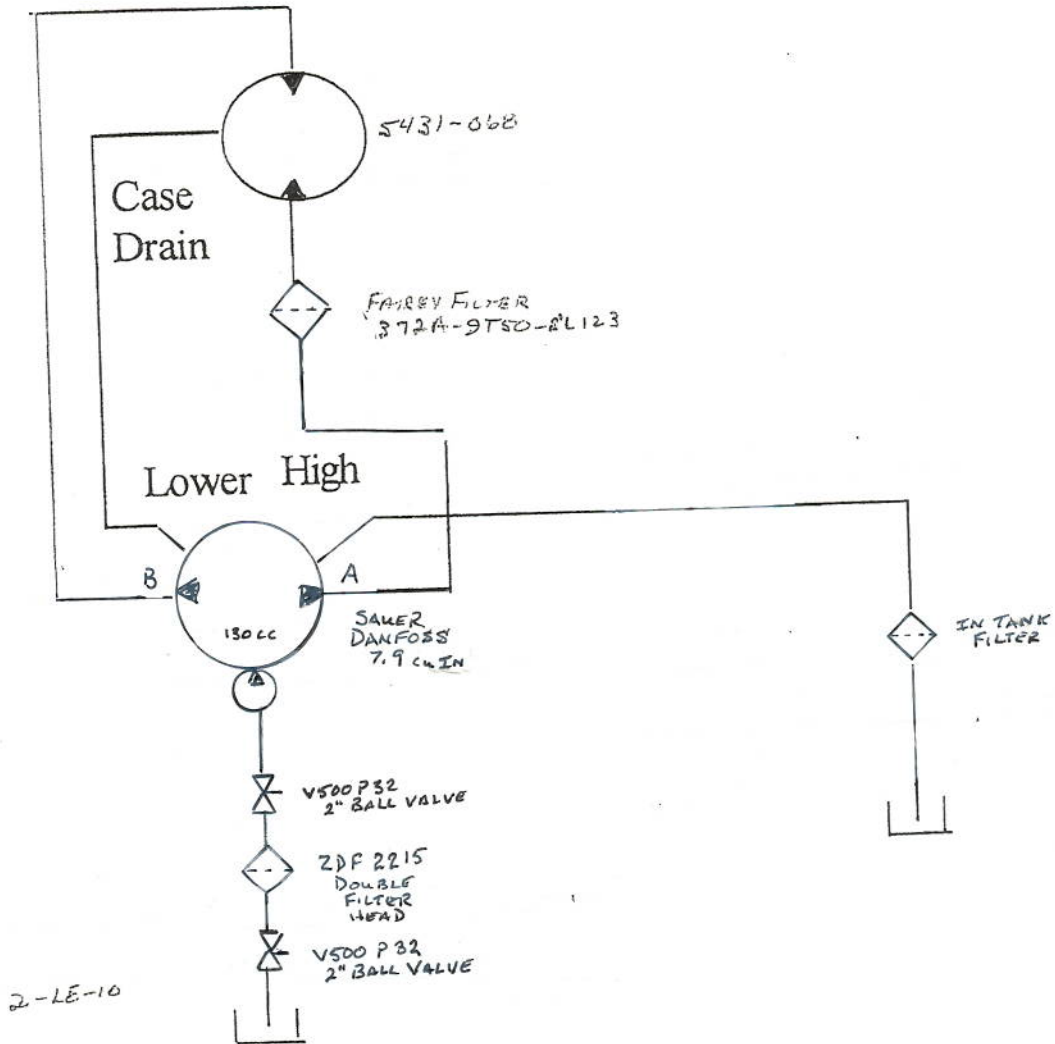 5431-068
Case
Drain
FAIREY FILTER
372A-9T50-EL123
Lower
High
B
A
130 CC
SAUER
DANFOSS
7.9 cu IN
IN TANK
FILTER
V500 P32
2" BALL VALVE
ZDF 2215
DOUBLE
FILTER
HEAD
V500 P 32
2" BALL VALVE
2-LE-10